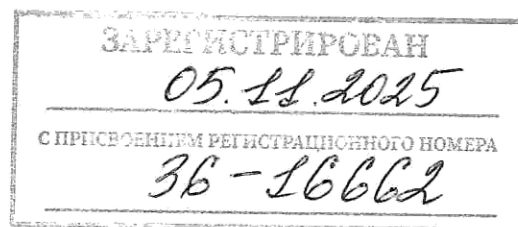 ЗАРЕГИСТРИРОВАН
05.11.2025
С ПРИСВОЕНИЕМ РЕГИСТРАЦИОННОГО НОМЕРА
36-16662